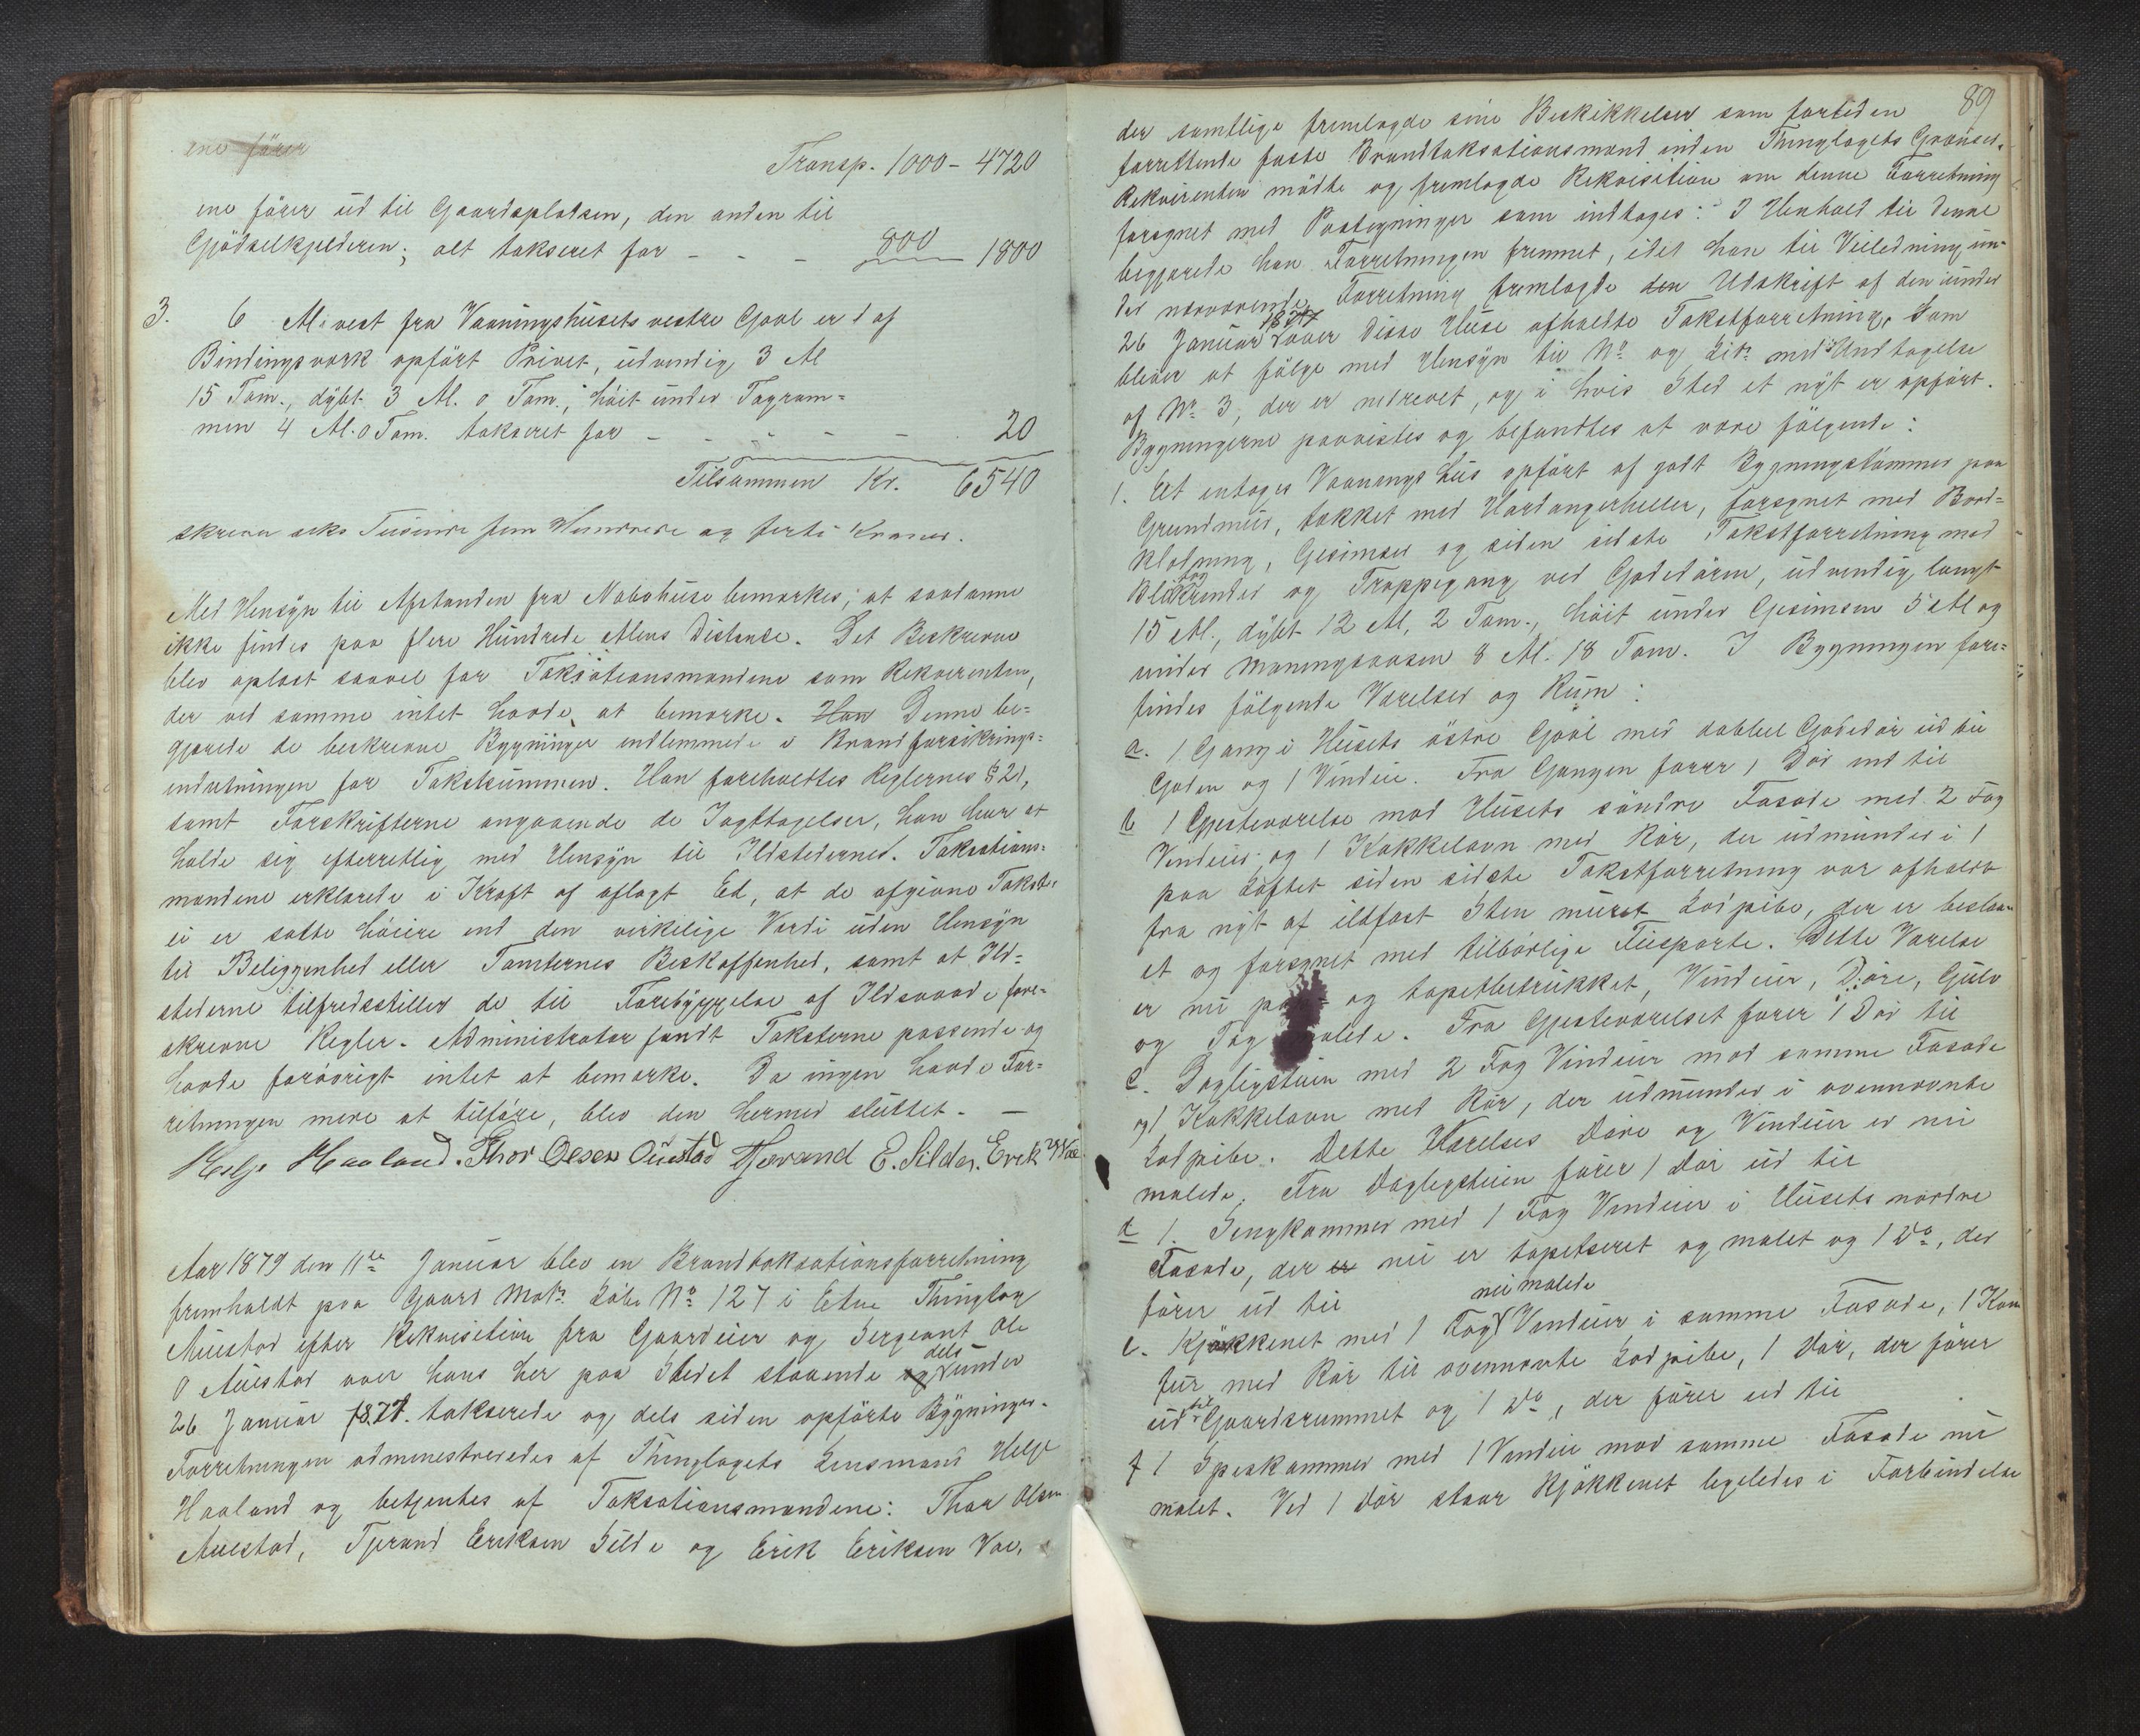 ene fører
Transp. 1000 – 4720
ene fører ud til Gaardspladsen, den anden til
Gjødselkjelderen; alt takseret for – – – 800 1800
3. 6 Al. vest fra Vaaningshusets vestre Gavl er 1 af
Bindingsværk opført Privet, udvendig 3 Al
15 Tom., dybt 3 Al. 0 Tom., høit under Tagram=
men 4 Al. 0 Tom. takseret for – – – – – 20
Tilsammen Kr. 6540
skriver seks Tusinde fem Hundrede og førti Kroner.
Med Hensyn til Afstanden fra Nabohuse bemærkes, at saadanne
ikke findes paa flere Hundrede Alens Distance. Det Beskrevne
blev oplæst saavel for Taksationsmændene som Rekvirenten,
der ved samme intet havde at bemærke. Han Denne be=
gjærede de beskrevne Bygninger indlemmede i Brandforsikrings=
indretningen for Takstsummen. Han foreholdtes Reglernes § 21,
samt Forskrifterne angaaende de Iagttagelser, han har at
holde sig efterrettlig med Hensyn til Ildstederned. Taksations=
mændene erklærede i Kraft af aflagt Ed, at de afgivne Takster
ei er satte høiere end den virkelige Værdi uden Hensyn
til Beliggenhed eller Tomternes Beskaffenhed, samt at Ild=
stederne tilfredsstiller de til Forebyggelse af Ildsvaade fore=
skrevne Regler. Administrator fandt Taksterne passende og
havde forøvrigt intet at bemærke. Da ingen havde For=
retningen mere at tilføre, blev den hermed sluttet. –
Helge Haaland. Thor Olsen Austad Tjerand E. Silde. Erek Wae
Aar 1879 den 11te Januar blev en Brandtaksationsforretning
fremholdt paa Gaard Matr. Løbe No 127 i Etne Thinglag
Austad efter Rekvisition fra Gaardeier og Sergeant Ole
O Austad over hans her paa Stedet staaende og dels under
26 Januar 1877. takserede og dels siden opførte Bygninger.
Forretningen administreredes af Thinglagets Lensmand Helge
Haaland og betjentes af Taksationsmændene: Thor Olsen
Austad, Tjerand Eriksen Silde og Erik Eriksen Vae,
89
der samtlige fremlagde sine Beskikkelser som fortiden
forrettende faste Brandtaksationsmænd inden Thinglagets Grænser.
Rekvirenten mødte og fremlagde Rekvisition om denne Forretning
forsynet med Paategninger som indtages: I Henhold til denne
begjærede han Forretningen fremmet, idet han til Veiledning un=
der nærværende Forretning fremlagde den Udskrift af den under
26 Januar 1877 over disse Huse afholdte Takstforretning, som
bliver at følge med Hensyn til No og Litr. med Undtagelse
af No 3, der er nedrevet, og i hvis Sted et nyt er opført.
Bygningerne paavistes og befandtes at være følgende:
1. Et entages Vaanings hus opført af godt Bygningstømmer paa
Grundmur, takket med Hardangerheller, forsynet med Bord=
klædning, Gesimser og siden sidste Takstforretning med
Bliktagrender og Trappegang ved Gadedøren, udvendig langt
15 Al., dybt 12 Al, 2 Tom., høit under Gesimsen 5 Al og
under Mønningsaasen 8 Al. 18 Tom. I Bygningen fore=
findes følgende Værelser og Rum:
a. 1 Gang i Husets østre Gavl med dobbel Gadedør ud til
Gaden og 1 Vindue. Fra Gangen fører 1 Dør ind til
b 1 Gjesteværelse mod Husets søndre Fasade med 2 Fag
Vinduer og 1 Kakkelovn med Rør, der udmunder i 1
paa Loftet siden sidste Takstforretning var afholdt
fra nyt af ildfast Sten muret Lodpibe, der er beslaa=
et og forsynet med tilbørlige Fiisporte. Dette Værelse
er nu og tapetbetrukket, Vinduer, Døre, Gulv
og Tag malede. Fra Gjesteværelset fører 1 Dør til
c. Dagligstuen med 2 Fag Vinduer mod samme Fasade
og 1 Kakkelovn med Rør, der udmunder i ovennævnte
Lodpibe. Dette Værelses Døre og Vinduer er nu
malede. Fra Dagligstuen fører 1 Dør ud til
d 1. Sengkammer med 1 Fag Vinduer i Husets nordre
Fasade, der er nu er tapetseret og malet og 1 Do, der
fører ud til
e. Kjøkkenet med 1 Fag nu malede Vinduer i samme Fasade, 1 Kom
fur med Rør til ovennævnte Lodpibe, 1 Dør, der fører
ud til Gaardsrummet og 1 Do, der fører ud til
f 1 Spiskammer med 1 Vindue mod samme Fasade nu
malet. Ved 1 Dør staar Kjøkkenet ligeledes i Forbindelse